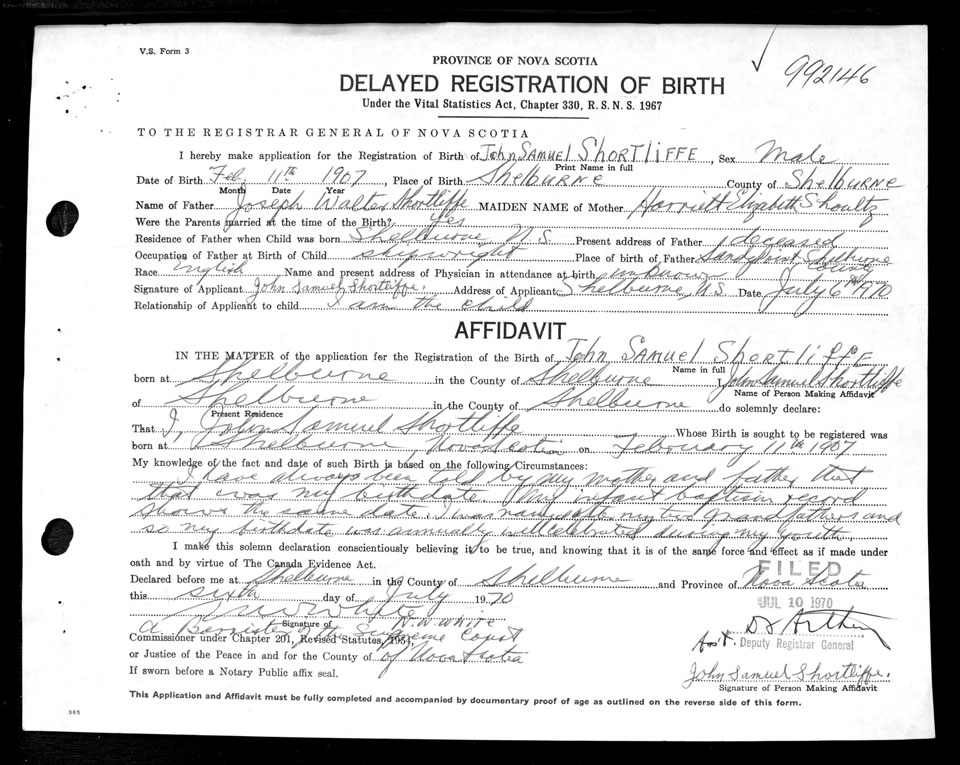 V.S. Form 3
992146
PROVINCE OF NOVA SCOTIA
DELAYED REGISTRATION OF BIRTH
Under the Vital Statistics Act, Chapter 330, R.S.N.S. 1967
TO THE REGISTRAR GENERAL OF NOVA SCOTIA
I hereby make application for the Registration of Birth of John SAMUEL SHORTLIFFE, Sex Male
Print Name in full
Date of Birth Feb. 11th 1907, Place of Birth Shelburne County of Shelburne
Month Date Year
Name of Father Joseph Walter Shortliffe MAIDEN NAME of Mother Harriett Elizabeth Shoultz
Were the Parents married at the time of the Birth? Yes
Residence of Father when Child was born Shelburne N.S. Present address of Father deceased
Occupation of Father at Birth of Child shipwright Place of birth of Father Sandy Point Shelburne County
Race English Name and present address of Physician in attendance at birth unknown
Signature of Applicant John Samuel Shortliffe. Address of Applicant Shelburne, N.S. Date July 6th 1970
Relationship of Applicant to child I am the child
AFFIDAVIT
IN THE MATTER of the application for the Registration of the Birth of John SAMUEL SHORTLIFFE
Name in full
born at Shelburne in the County of Shelburne I, John Samuel Shortliffe
Name of Person Making Affidavit
of Shelburne in the County of Shelburne do solemnly declare:
Present Residence
That I, John Samuel Shortliffe Whose Birth is sought to be registered was
born at Shelburne, Nova Scotia on February 11th 1907
My knowledge of the fact and date of such Birth is based on the following Circumstances:
I have always been told by my mother and father that
that was my birthdate. My infant baptism record
shows the same date. I was named after my two grandfathers and
so my birthdate was annually celebrated during my youth.
I make this solemn declaration conscientiously believing it to be true, and knowing that it is of the same force and effect as if made under
oath and by virtue of The Canada Evidence Act.
FILED
Declared before me at Shelburne in the County of Shelburne and Province of Nova Scotia
this sixth day of July 1970
JUL 10 1970
Signature of N.W. White
A Barrister of the Supreme Court
Commissioner under Chapter 201, Revised Statutes, 1954,
Ass't. Deputy Registrar General
or Justice of the Peace in and for the County of of Nova Scotia
If sworn before a Notary Public affix seal.
John Samuel Shortliffe.
Signature of Person Making Affidavit
This Application and Affidavit must be fully completed and accompanied by documentary proof of age as outlined on the reverse side of this form.
385